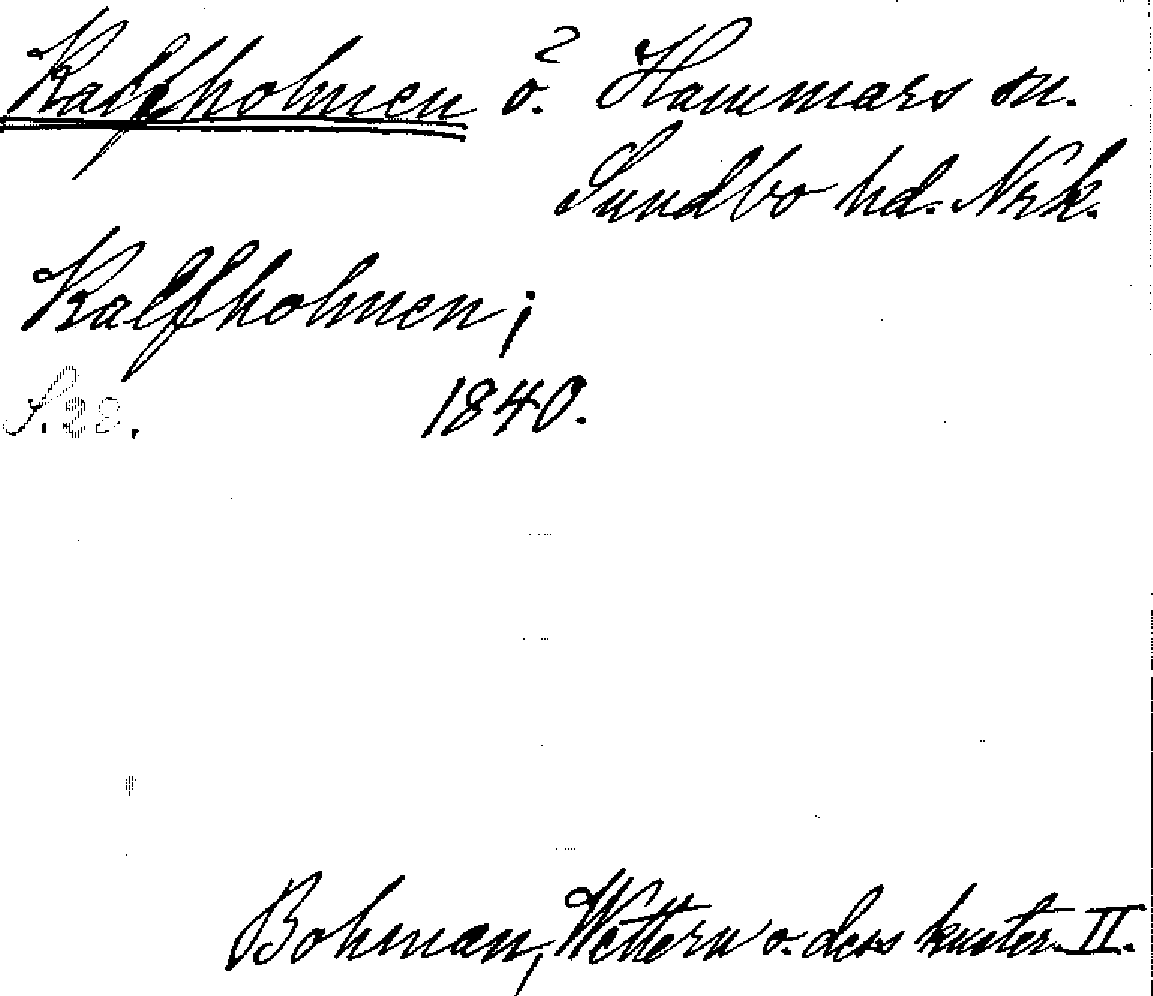 Kalfholmen ö. Hammars sn.
Sundbo hd. Nrk.
Kalfholmen;
S. 22. 1840.
Bohman, Wettern o. dess kuster. II.